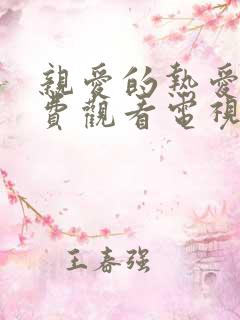 親愛的熱愛
費觀看電視
王春强